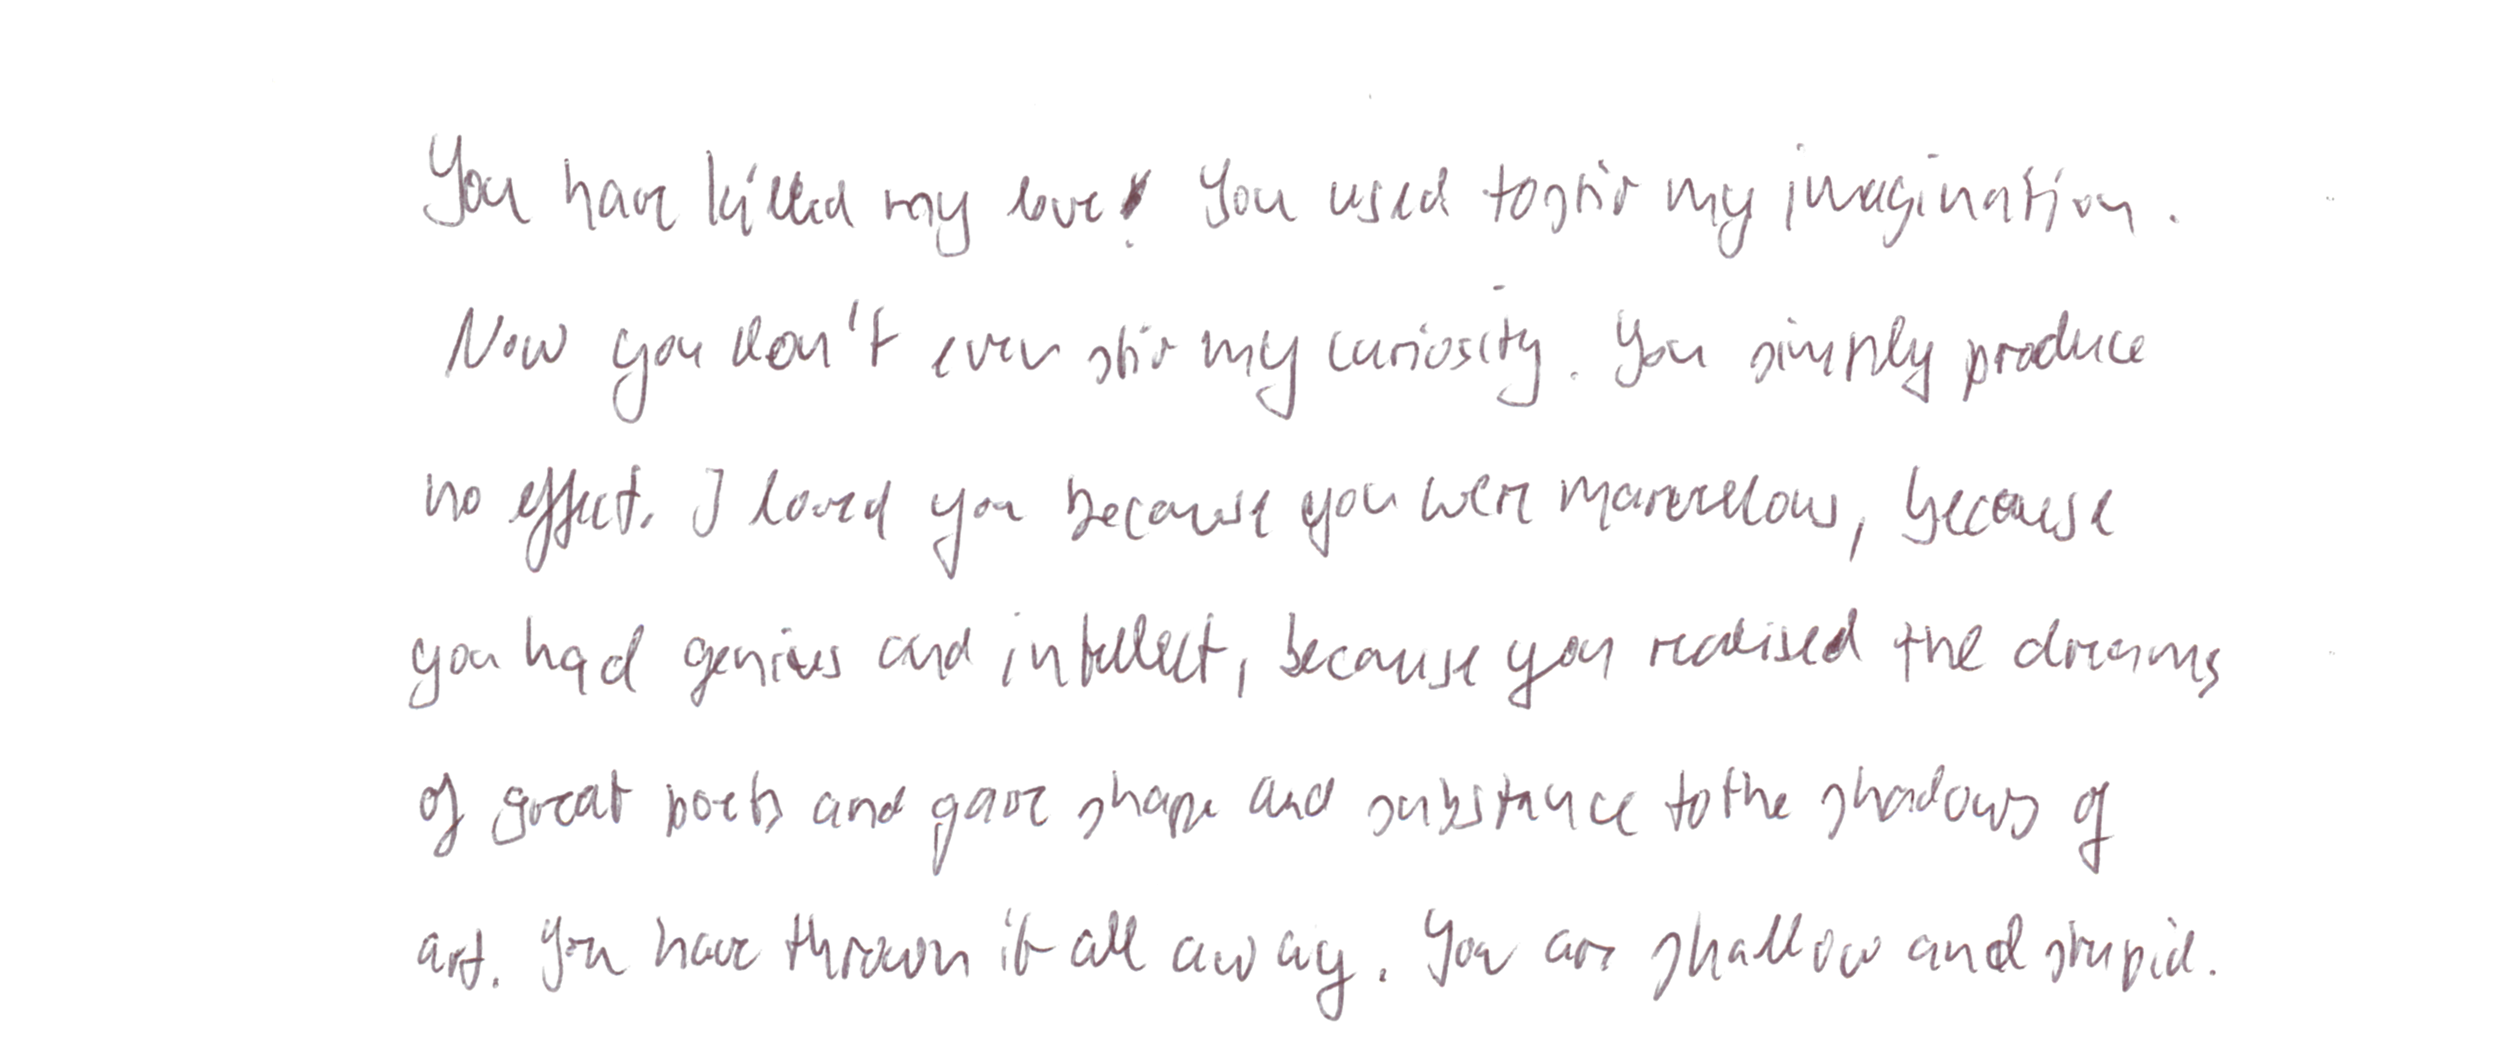 You have killed my love! You used to stir my imagination.
Now you don't even stir my curiosity. You simply produce
no effect. I loved you because you were marvellous, because
you had genius and intellect, because you realised the dreams
of great poets and gave shape and substance to the shadows of
art. You have thrown it all away. You are shallow and stupid.